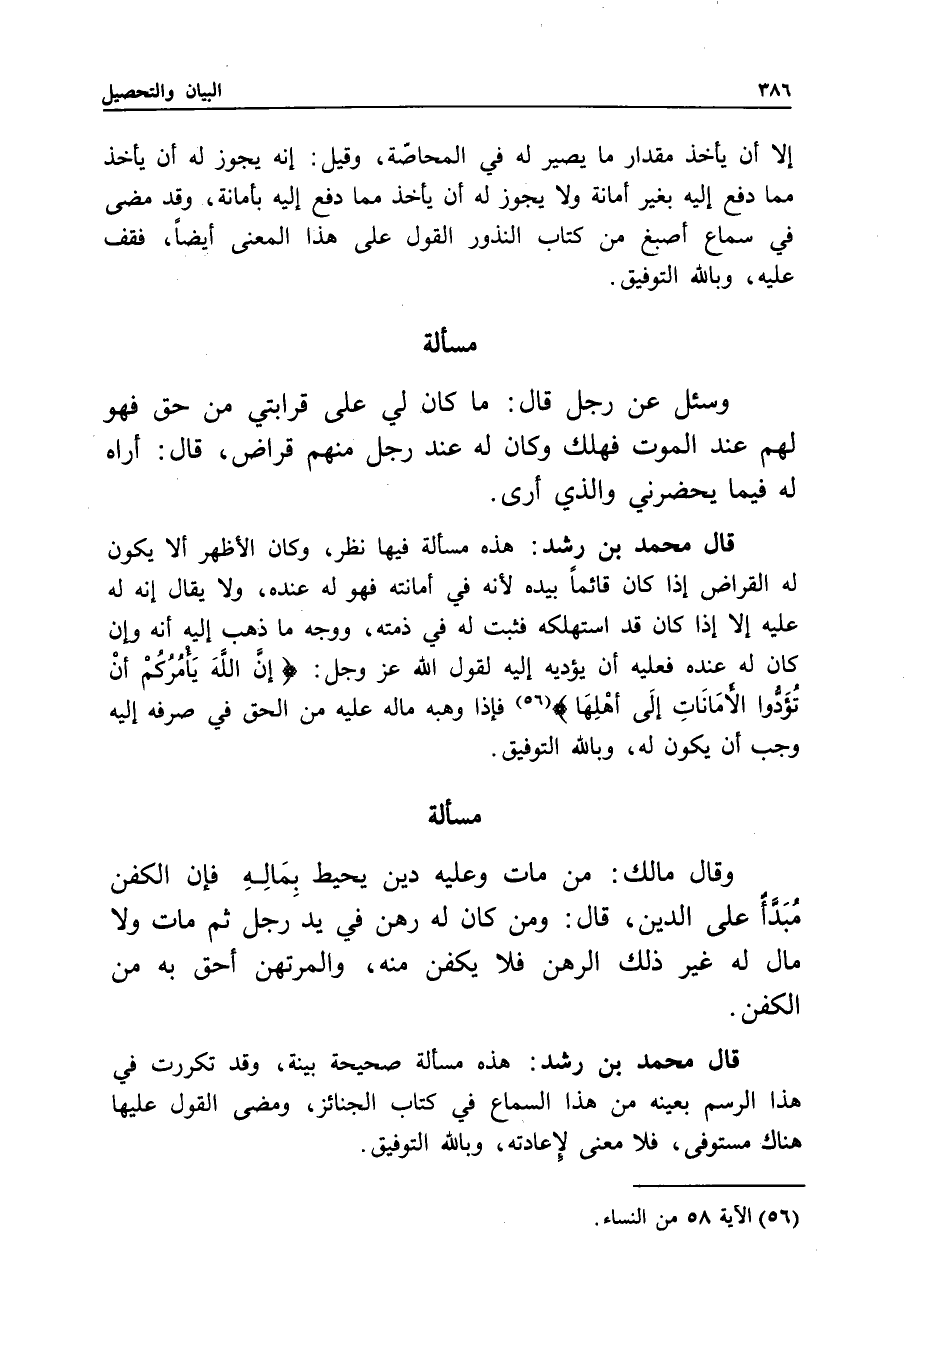 ٣٨٦ البيان والتحصيل
إلا أن يأخذ مقدار ما يصير له في المحاصّة، وقيل: إنه يجوز له أن يأخذ
مما دفع إليه بغير أمانة ولا يجوز له أن يأخذ مما دفع إليه بأمانة، وقد مضى
في سماع أصبغ من كتاب النذور القول على هذا المعنى أيضاً، فقف
عليه، وبالله التوفيق.
مسألة
وسئل عن رجل قال: ما كان لي على قرابتي من حق فهو
لهم عند الموت فهلك وكان له عند رجل منهم قراض، قال: أراه
له فيما يحضرني والذي أرى.
قال محمد بن رشد: هذه مسألة فيها نظر، وكان الأظهر ألا يكون
له القراض إذا كان قائماً بيده لأنه في أمانته فهو له عنده، ولا يقال إنه له
عليه إلا إذا كان قد استهلكه فثبت له في ذمته، ووجه ما ذهب إليه أنه وإن
كان له عنده فعليه أن يؤديه إليه لقول الله عز وجل: ﴿إنَّ اللَّهَ يَأْمُرُكُمْ أنْ
تُؤَدُّوا الأَمَانَاتِ إلَى أهْلِهَا﴾(٥٦) فإذا وهبه ماله عليه من الحق في صرفه إليه
وجب أن يكون له، وبالله التوفيق.
مسألة
وقال مالك: من مات وعليه دين يحيط بِمَالِهِ فإن الكفن
مُبَدَّأٌ على الدين، قال: ومن كان له رهن في يد رجل ثم مات ولا
مال له غير ذلك الرهن فلا يكفن منه، والمرتهن أحق به من
الكفن.
قال محمد بن رشد: هذه مسألة صحيحة بينة، وقد تكررت في
هذا الرسم بعينه من هذا السماع في كتاب الجنائز، ومضى القول عليها
هناك مستوفى، فلا معنى لإعادته، وبالله التوفيق.
(٥٦) الآية ٥٨ من النساء.